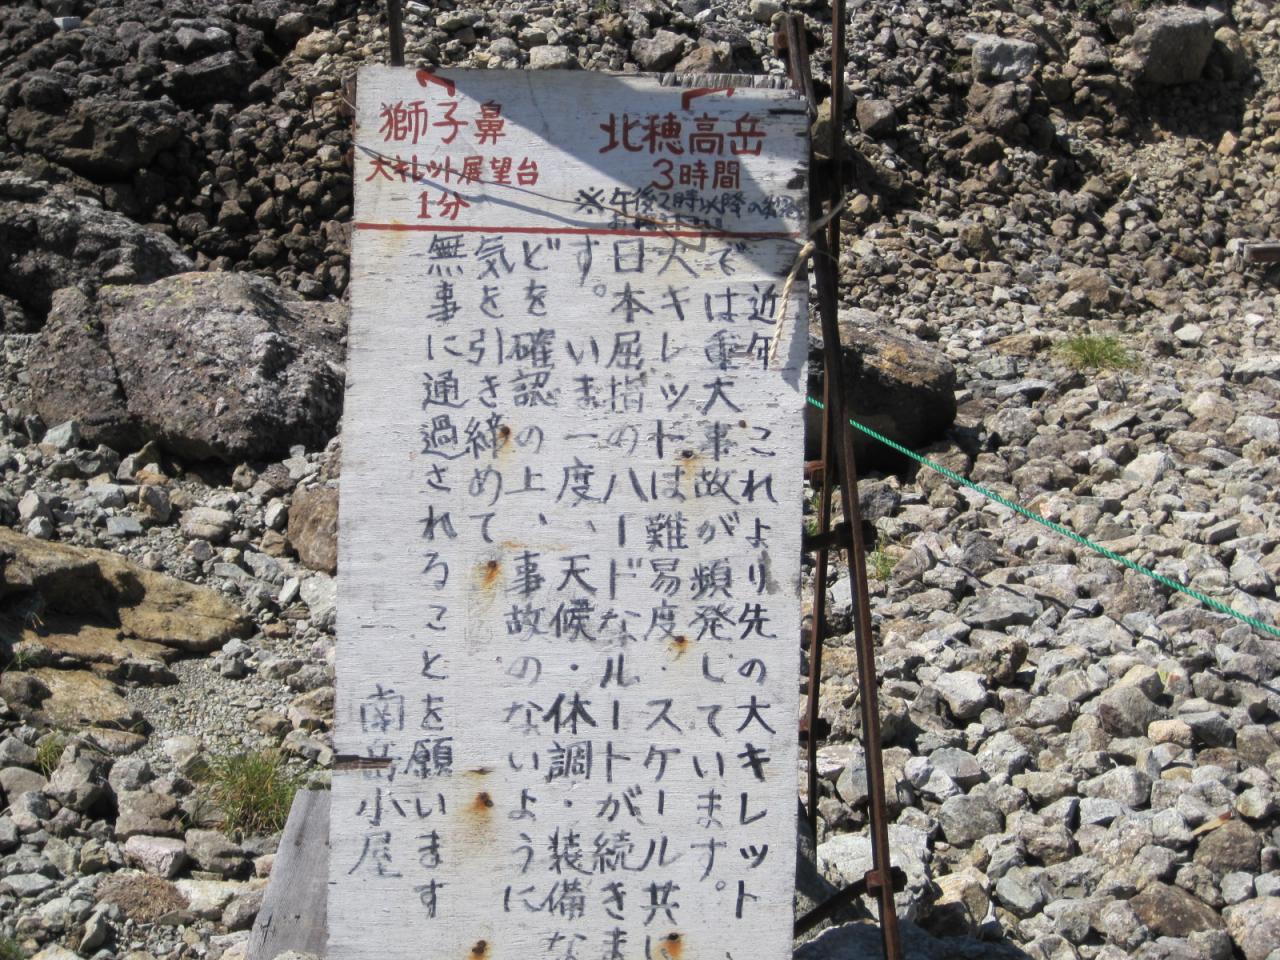 獅子鼻
大キレット展望台
1分
北穂高岳
3時間
※午後2時以降の
近年 これより先の大キレット
では重大事故が頻発しています。
大キレットは難易度・スケール共に
日本屈指のハードなルートが続きま
す。 いま一度、天候・体調・装備な
どを確認の上、事故のないように
気を引き締めて
無事に通過されることを願います
南岳小屋